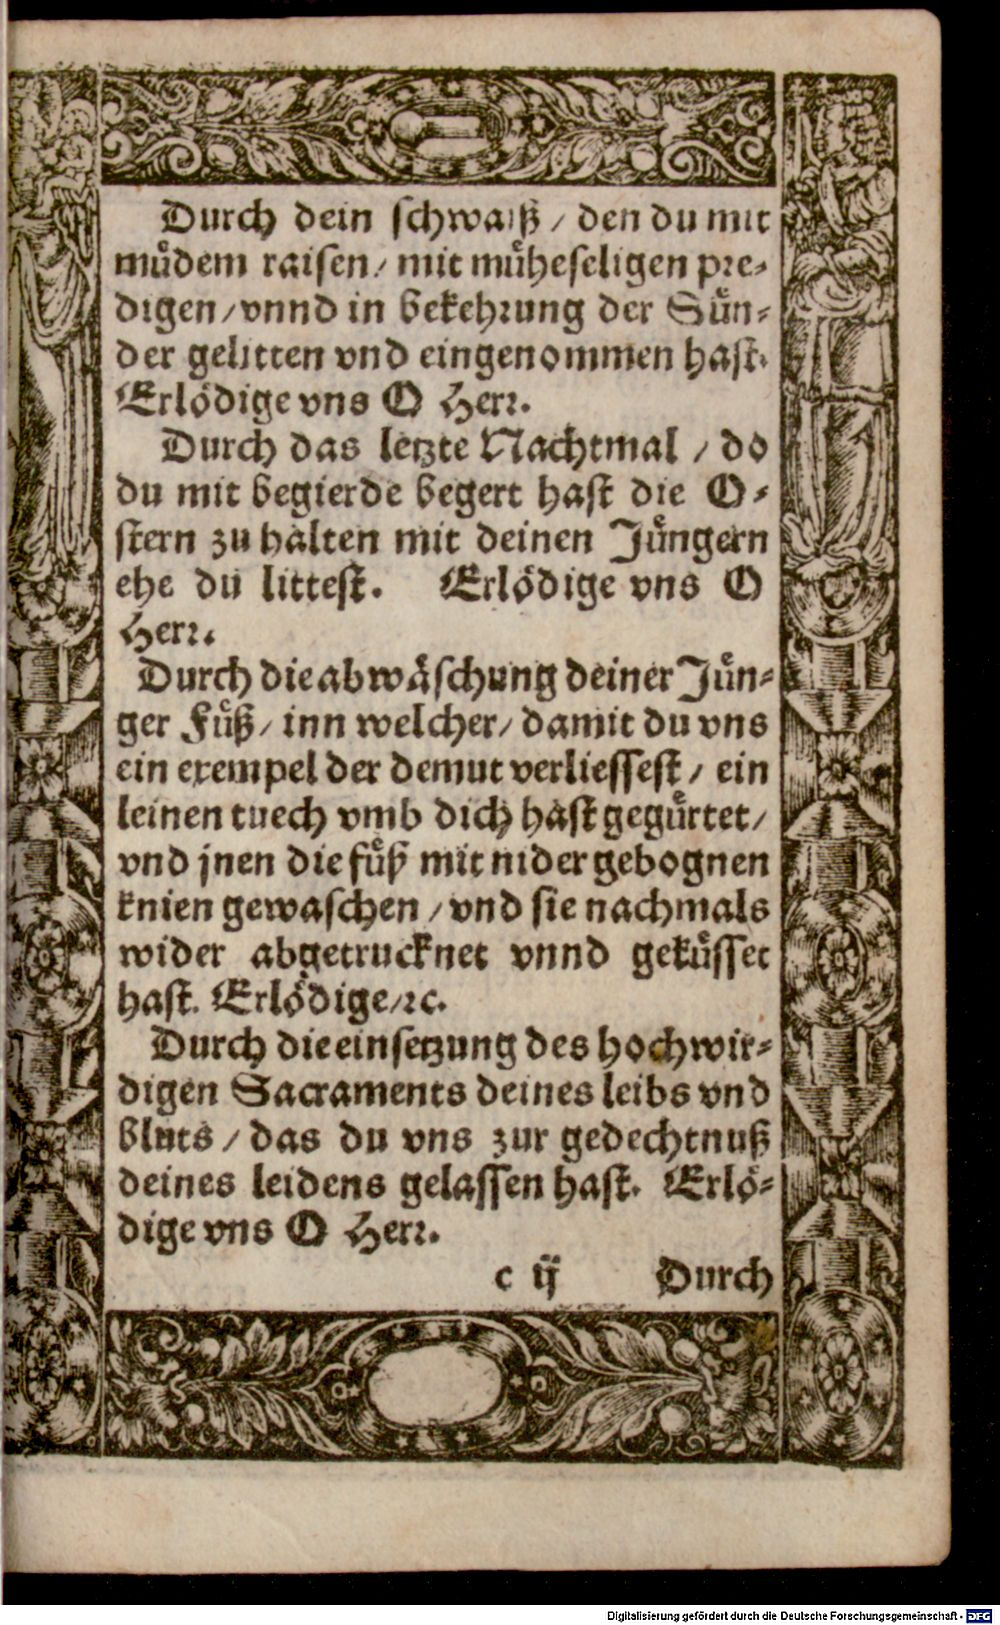 Durch dein schwaiß / den du mit
muͤdem raisen / mit muͤheseligen pre⸗
digen / vnnd in bekehrung der Suͤn⸗
der gelitten vnd eingenommen hast.
Erloͤdige vns O Herr.
Durch das letzte Nachtmal / do
du mit begierde begert hast die O⸗
stern zu halten mit deinen Juͤngern
ehe du littest. Erloͤdige vns O
Herr.
Durch die abwaͤschung deiner Juͤn⸗
ger Fuͤß / inn welcher / damit du vns
ein exempel der demut verliessest / ein
leinen tuech vmb dich hast geguͤrtet /
vnd jnen die fuͤß mit nider gebognen
knien gewaschen / vnd sie nachmals
wider abgetrucknet vnnd gekuͤsset
hast. Erloͤdige / ꝛc.
Durch die einsetzung des hochwir⸗
digen Sacraments deines leibs vnd
bluts / das du vns zur gedechtnuß
deines leidens gelassen hast. Erloͤ⸗
dige vns O Herr.
c ij Durch
Digitalisierung gefördert durch die Deutsche Forschungsgemeinschaft - DFG